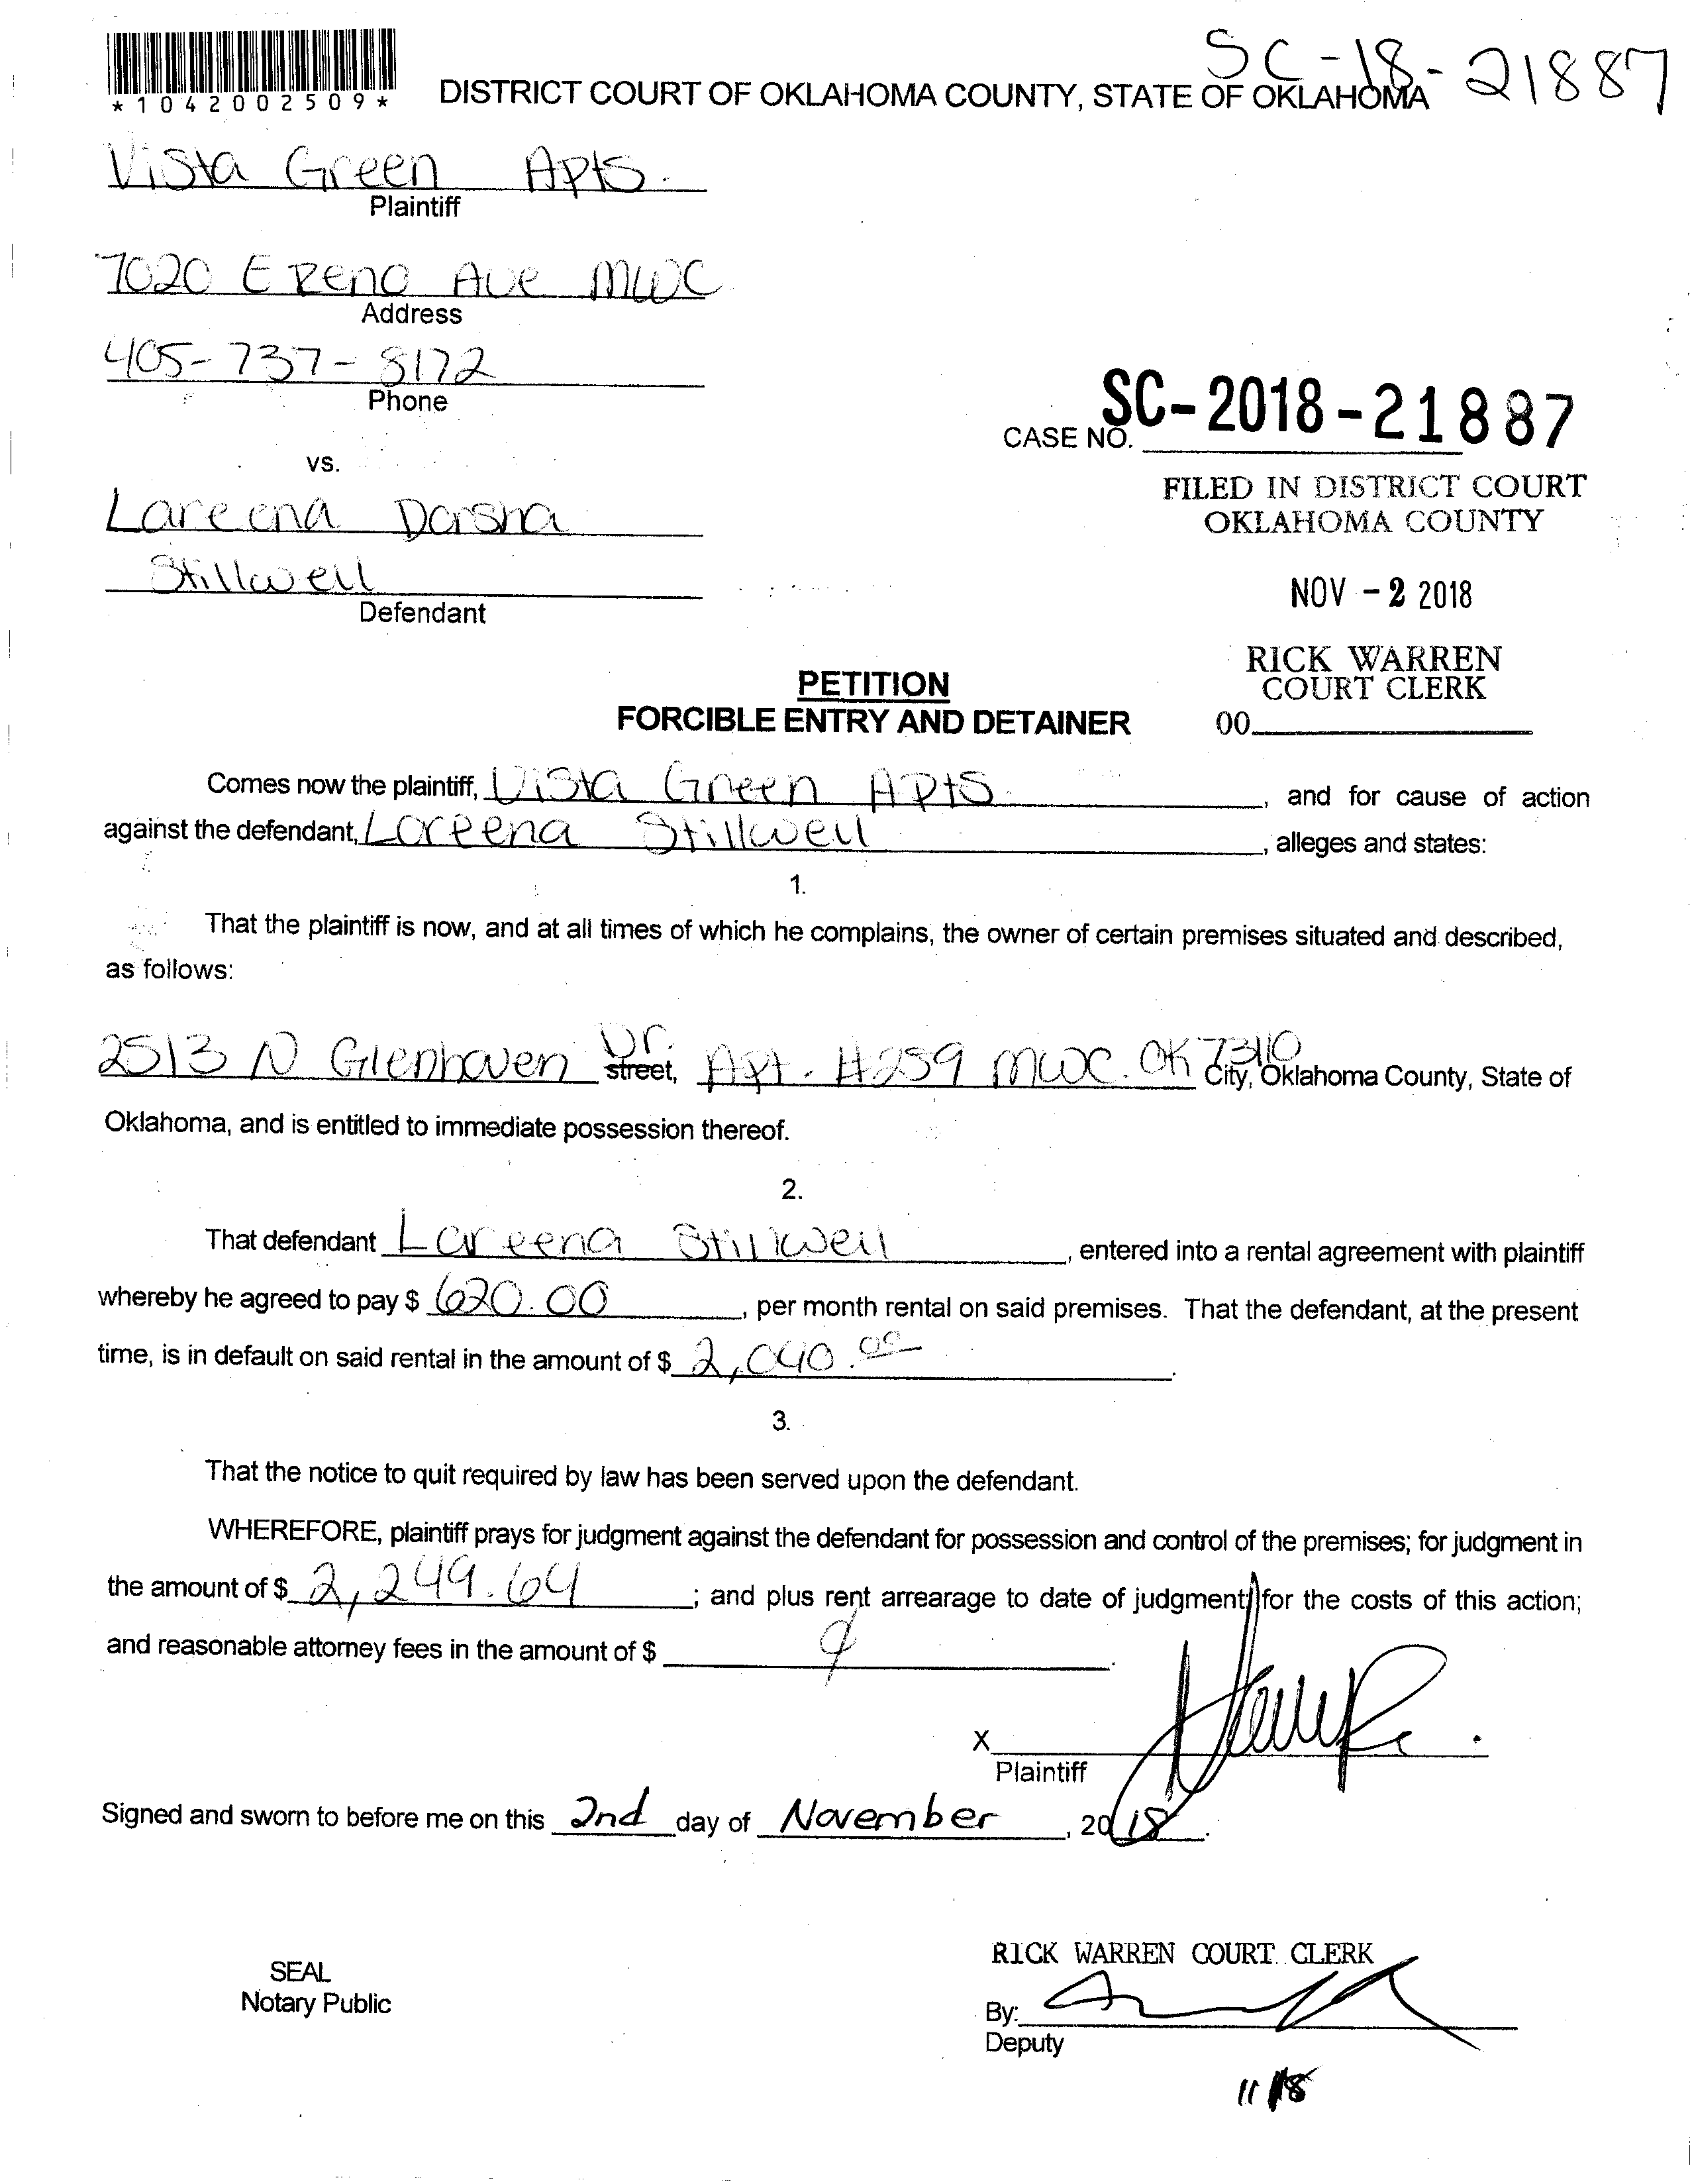 SC-18-21887
*1042002509*
DISTRICT COURT OF OKLAHOMA COUNTY, STATE OF OKLAHOMA
Vista Green Apts.
Plaintiff
7020 E Reno Ave MWC
Address
405-737-8172
Phone
SC-2018-21887
CASE NO.
vs.
FILED IN DISTRICT COURT
OKLAHOMA COUNTY
Lareena Darsha
Stillwell
Defendant
NOV - 2 2018
RICK WARREN
COURT CLERK
00
PETITION
FORCIBLE ENTRY AND DETAINER
Comes now the plaintiff, Vista Green Apts. , and for cause of action
against the defendant, Lareena Stillwell , alleges and states:
1.
That the plaintiff is now, and at all times of which he complains, the owner of certain premises situated and described,
as follows:
2513 N Glenhaven Dr. street, Apt. #259 MWC. OK 73110 City, Oklahoma County, State of
Oklahoma, and is entitled to immediate possession thereof.
2.
That defendant Lareena Stillwell , entered into a rental agreement with plaintiff
whereby he agreed to pay $ 620.00 , per month rental on said premises. That the defendant, at the present
time, is in default on said rental in the amount of $ 2,040.00 .
3.
That the notice to quit required by law has been served upon the defendant.
WHEREFORE, plaintiff prays for judgment against the defendant for possession and control of the premises; for judgment in
the amount of $ 2,249.64 ; and plus rent arrearage to date of judgment; for the costs of this action;
and reasonable attorney fees in the amount of $ .
X
Plaintiff
Signed and sworn to before me on this 2nd day of November , 2018.
SEAL
Notary Public
RICK WARREN COURT CLERK
By:
Deputy